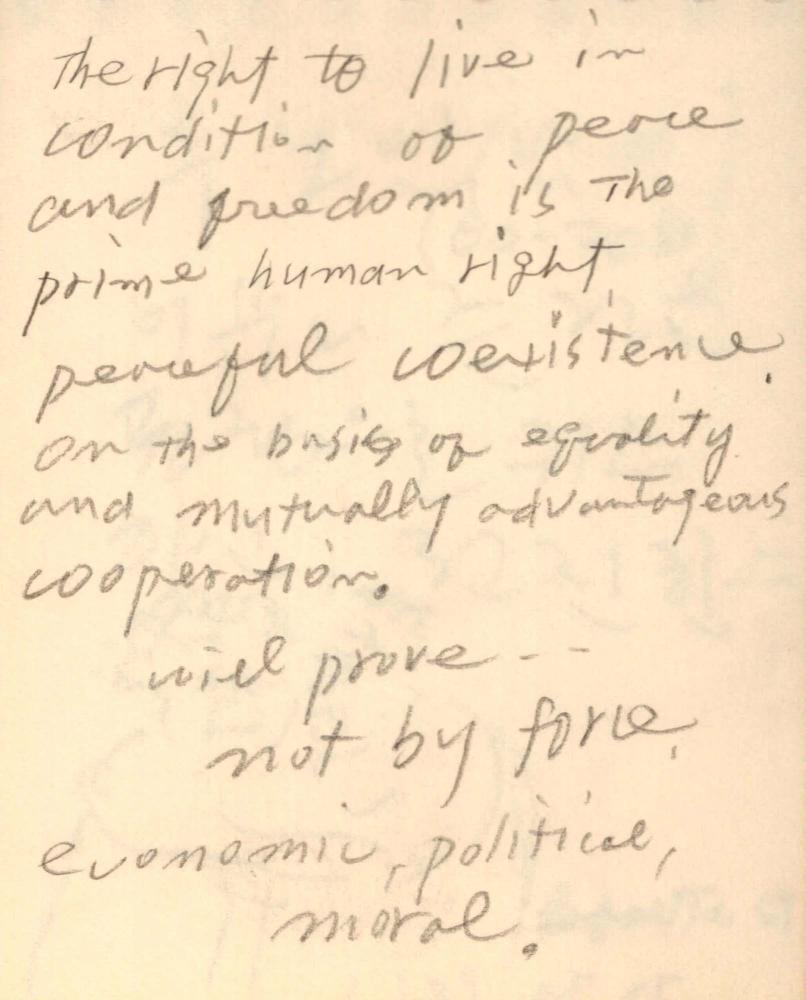 the right to live in
condition of peace
and freedom is the
prime human right,
peaceful coexistence.
on the basis of equality
and mutually advantageous
cooperation.
will prove --
not by force.
economic, political,
moral.